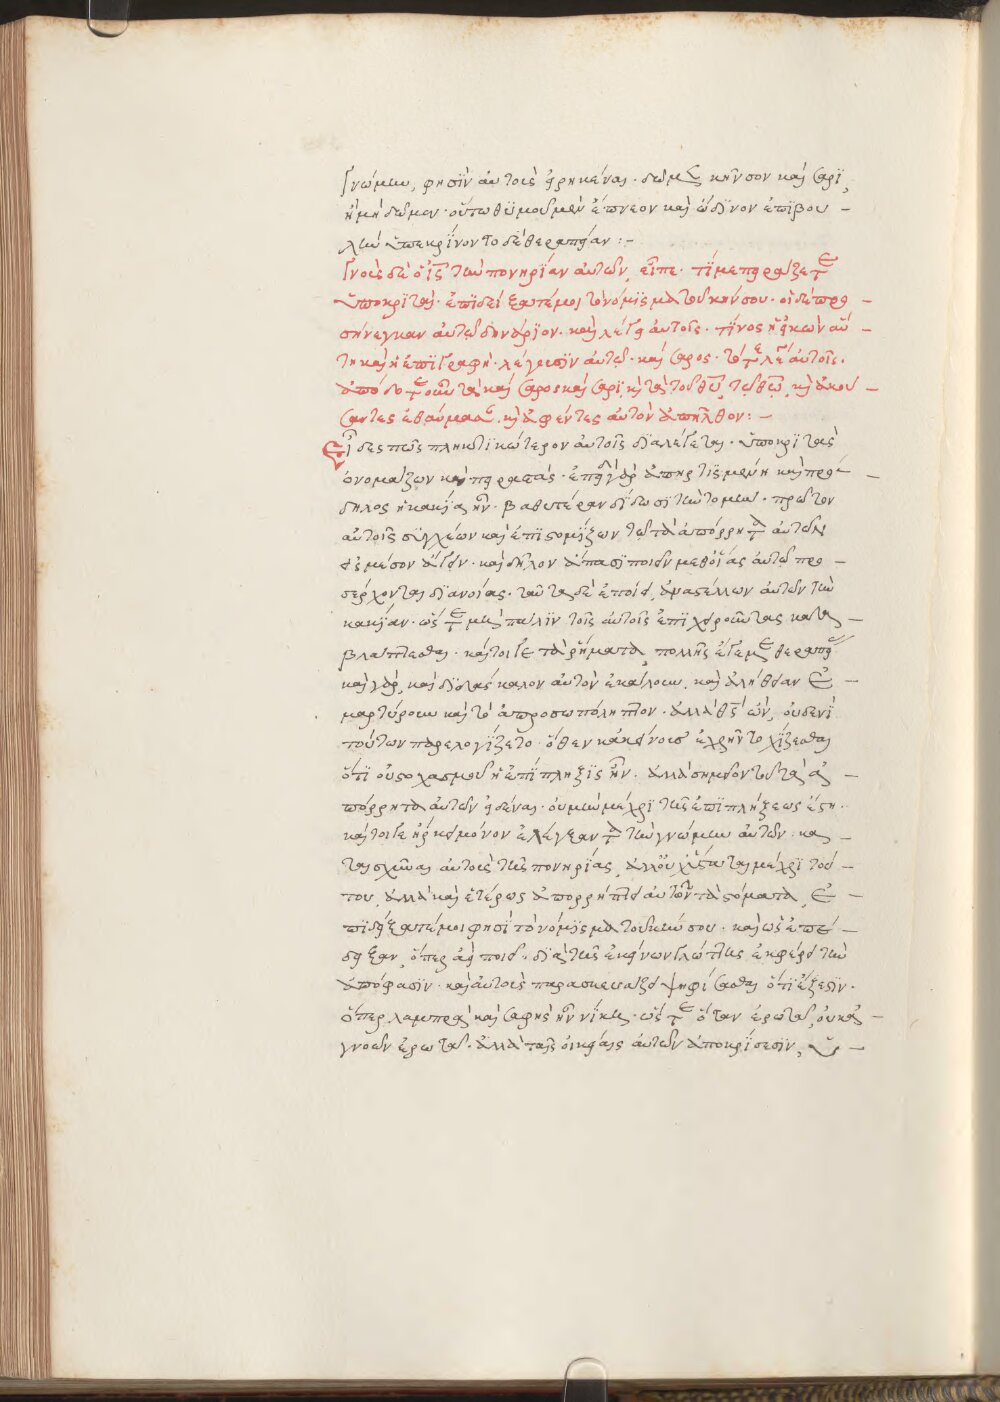 γνώμην, φησὶν αὐτοὺς εἰρηκέναι· δῶμεν κῆνσον καίσαρϊ,
ἢ μὴ δῶμεν· οὕτω θυμοῦ μὲν ἔπνεον καὶ ὤδινον ἐπιβου –
λήν ὑπεκρίνοντο δὲ θεραπείαν :–
Γνοὺς δὲ ὁ ἰς τὴν πονηρίαν αὐτῶν, εἶπε· τί με πειράζετε
ὑποκριταί· ἐπιδείξατέ μοι τὸ νόμισμα τοῦ κήνσου· οἱ δὲ προ –
σήνεγκαν αὐτῷ δηνάριον· καὶ λέγει αὐτοῖς· τίνος ἡ εἰκὼν αὕ –
τη καὶ ἡ ἐπιγραφή· λέγουσιν αὐτῷ· καίσαρος· τότε λέγει αὐτοῖς·
ἀπόδοτε οὖν τὰ καίσαρος καίσαρι, κὴ τὰ τοῦ θυ, τῷ θω, κὴ ἀκού –
σαντες ἐθαύμασαν, κὴ ἀφέντες αὐτὸν ἀπῆλθον :–
Εἶδες πῶς πληκτικώτερον αὐτοῖς διαλέγεται· ὑποκριτὰς
ὀνομάζων καὶ πειραστάς· ἐπειδὴ γὰρ ἀπηρτισμένη καὶ πρό –
δηλος ἡ κακία ἦν· βαθυτέραν δίδωσι τὴν τομήν· πρῶτον
αὐτοὺς συγχέων καὶ ἐπιστομίζων τῷ τὰ ἀπόρρητα αὐτῶν
εἰς μέσον ἄγειν· καὶ δῆλον ἅπασι ποιεῖν μεθ' οἵας αὐτῷ προ –
σέρχονται διανοίας· ταῦτα δὲ ἐποίει, ἀναστέλλων αὐτῶν τὴν
κακίαν· ὥστε μὴ πάλιν τοῖς αὐτοῖς ἐπιχειροῦντας κατα –
βλάπτεσθαι· καίτοιγε τὰ ῥήματα, πολλῆς ἔγεμε θεραπείας
καὶ γὰρ, καὶ διδάσκαλον αὐτὸν ἐκάλουν, καὶ ἀλήθειαν ἐ –
μαρτύρουν καὶ τὸ ἀπροσωπόληπτον· ἀλλὰ θς ὤν, οὐδενὶ
τούτων παρελογίζετο· ὅθεν κἀκείνους ἐχρῆν λογίζεσθαι
ὅτι οὐ στοχασμοῦ ἡ ἐπίπληξις ἦν· ἀλλὰ σημεῖον τοῦ τὰ ἀ –
πόρρητα αὐτῶν εἰδέναι· οὐ μὴν μέχρι τῆς ἐπιπλήξεως ἔστη·
καίτοιγε ἤρκει μόνον ἐλέγξαντα τὴν γνώμην αὐτῶν· κα –
ταισχῦναι αὐτοὺς τῆς πονηρίας, ἀλλ' οὐχ ἵσταται μέχρι τού –
του, ἀλλὰ καὶ ἑτέρως ἀπορράπτει αὐτῶν τὰ στόματα, ἐ –
πιδείξατέ μοι φησὶ τὸ νόμισμα τοῦ κήνσου· καὶ ὡς ἐπέ –
δειξαν, ὅπερ ἀεὶ ποιεῖ· διὰ τῆς ἐκείνων γλώττης ἐκφέρει τὴν
ἀπόφασιν· καὶ αὐτοὺς παρασκευάζει ψηφίσασθαι ὅτι ἔξεστιν·
ὅπερ λαμπρὰ καὶ σαφὴς ἦν νίκη· ὥστε ὅταν ἐρωτᾷ, οὐκ ἀ –
γνοῶν ἐρωτᾷ· ἀλλὰ ταῖς οἰκείαις αὐτῶν ἀποκρίσεσιν, ὑ –